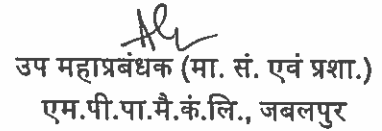 उप महाप्रबंधक (मा. सं. एवं प्रशा.)
एम.पी.पा.मै.कं.लि., जबलपुर